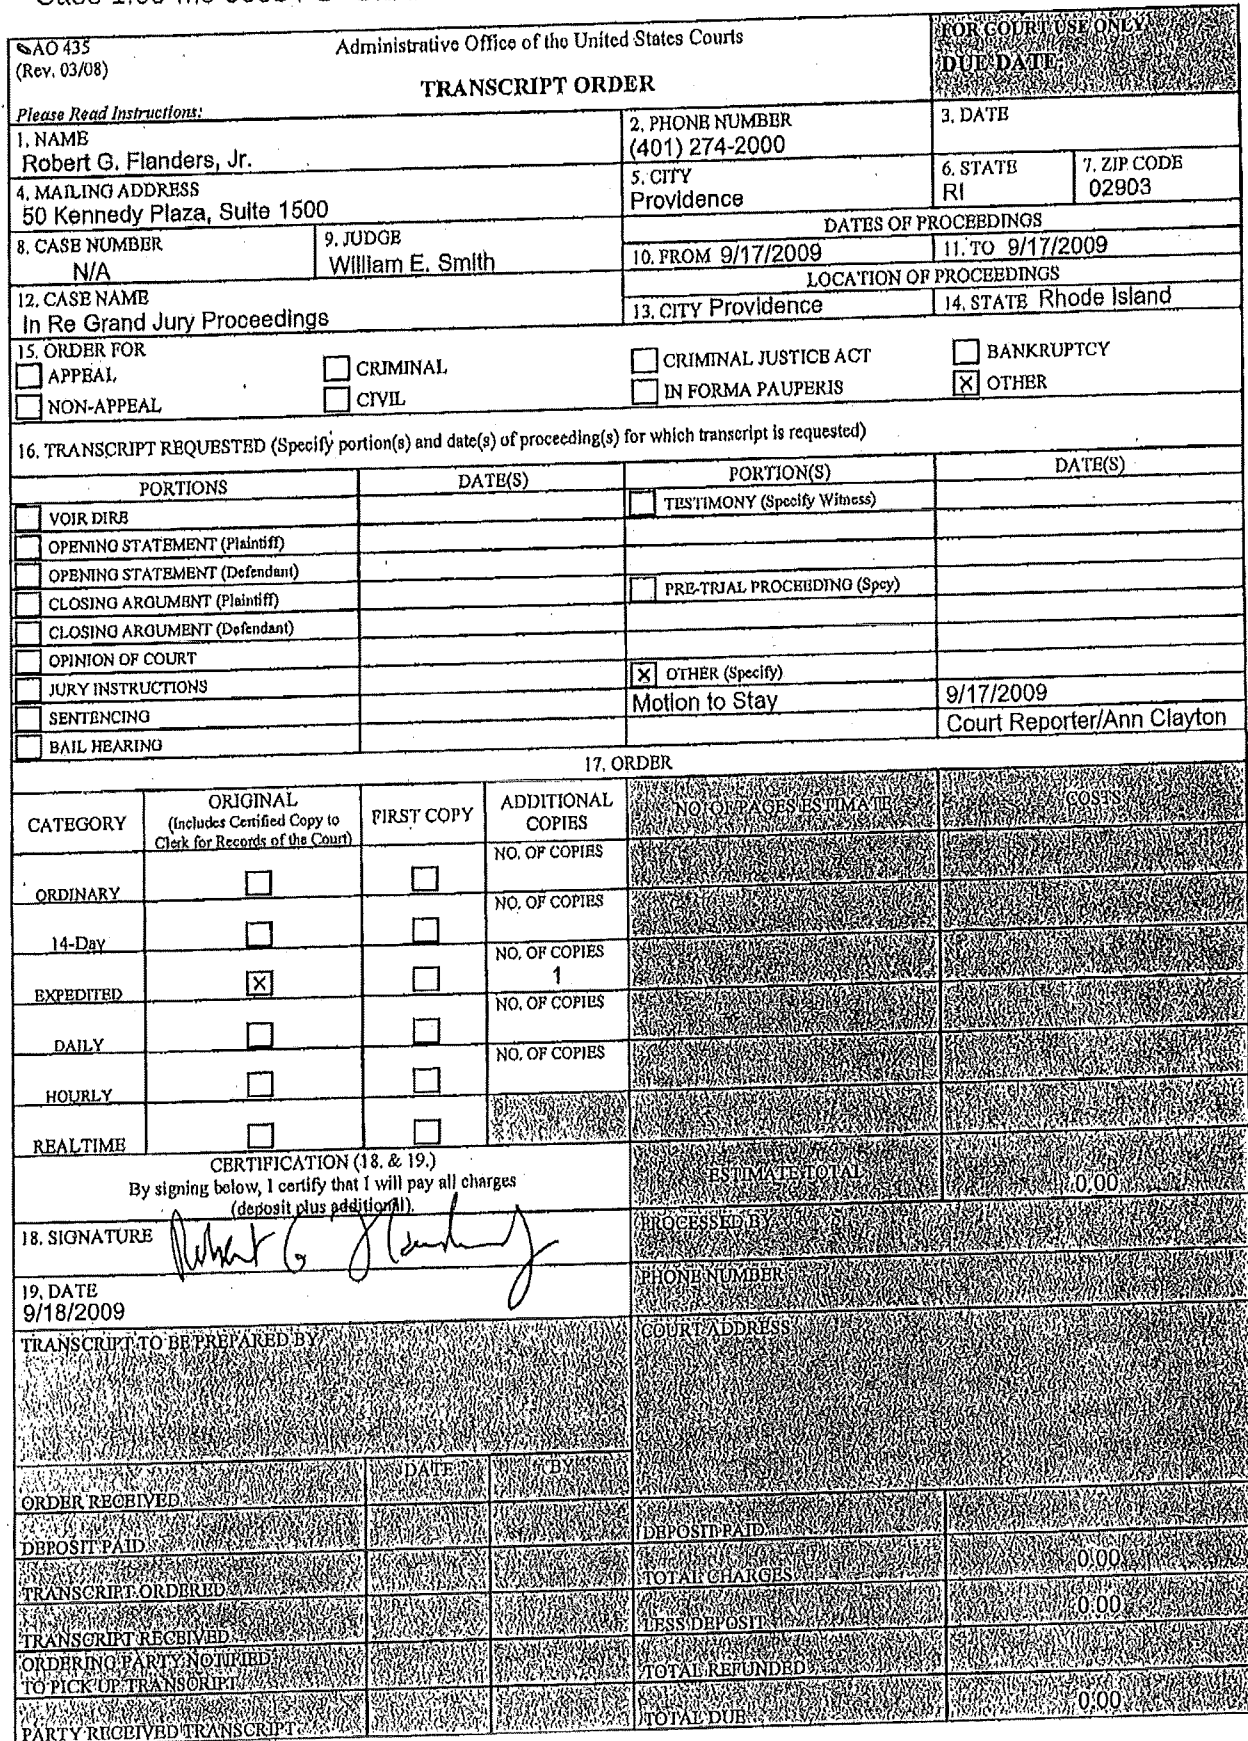 AO 435
(Rev. 03/08)
Administrative Office of the United States Courts
TRANSCRIPT ORDER
FOR COURT USE ONLY
DUE DATE:
Please Read Instructions:
1. NAME
Robert G. Flanders, Jr.
2. PHONE NUMBER
(401) 274-2000
3. DATE
4. MAILING ADDRESS
50 Kennedy Plaza, Suite 1500
5. CITY
Providence
6. STATE
RI
7. ZIP CODE
02903
8. CASE NUMBER
N/A
9. JUDGE
William E. Smith
DATES OF PROCEEDINGS
10. FROM 9/17/2009
11. TO 9/17/2009
12. CASE NAME
In Re Grand Jury Proceedings
LOCATION OF PROCEEDINGS
13. CITY Providence
14. STATE Rhode Island
15. ORDER FOR
APPEAL
CRIMINAL
CRIMINAL JUSTICE ACT
BANKRUPTCY
NON-APPEAL
CIVIL
IN FORMA PAUPERIS
X OTHER
16. TRANSCRIPT REQUESTED (Specify portion(s) and date(s) of proceeding(s) for which transcript is requested)
PORTIONS
DATE(S)
PORTION(S)
DATE(S)
VOIR DIRE
TESTIMONY (Specify Witness)
OPENING STATEMENT (Plaintiff)
OPENING STATEMENT (Defendant)
CLOSING ARGUMENT (Plaintiff)
PRE-TRIAL PROCEEDING (Spcy)
CLOSING ARGUMENT (Defendant)
OPINION OF COURT
JURY INSTRUCTIONS
X OTHER (Specify)
SENTENCING
Motion to Stay
9/17/2009
BAIL HEARING
Court Reporter/Ann Clayton
17. ORDER
CATEGORY
ORIGINAL
(Includes Certified Copy to
Clerk for Records of the Court)
FIRST COPY
ADDITIONAL
COPIES
NO. OF PAGES ESTIMATE
COSTS
ORDINARY
NO. OF COPIES
14-Day
NO. OF COPIES
EXPEDITED
X
NO. OF COPIES
1
DAILY
NO. OF COPIES
HOURLY
NO. OF COPIES
REALTIME
CERTIFICATION (18. & 19.)
By signing below, I certify that I will pay all charges
(deposit plus additional).
ESTIMATE TOTAL
0.00
18. SIGNATURE
Robert G Flanders Jr
PROCESSED BY
19. DATE
9/18/2009
PHONE NUMBER
TRANSCRIPT TO BE PREPARED BY
COURT ADDRESS
DATE
BY
ORDER RECEIVED
DEPOSIT PAID
DEPOSIT PAID
TRANSCRIPT ORDERED
TOTAL CHARGES
0.00
TRANSCRIPT RECEIVED
LESS DEPOSIT
0.00
ORDERING PARTY NOTIFIED
TO PICK UP TRANSCRIPT
TOTAL REFUNDED
PARTY RECEIVED TRANSCRIPT
TOTAL DUE
0.00